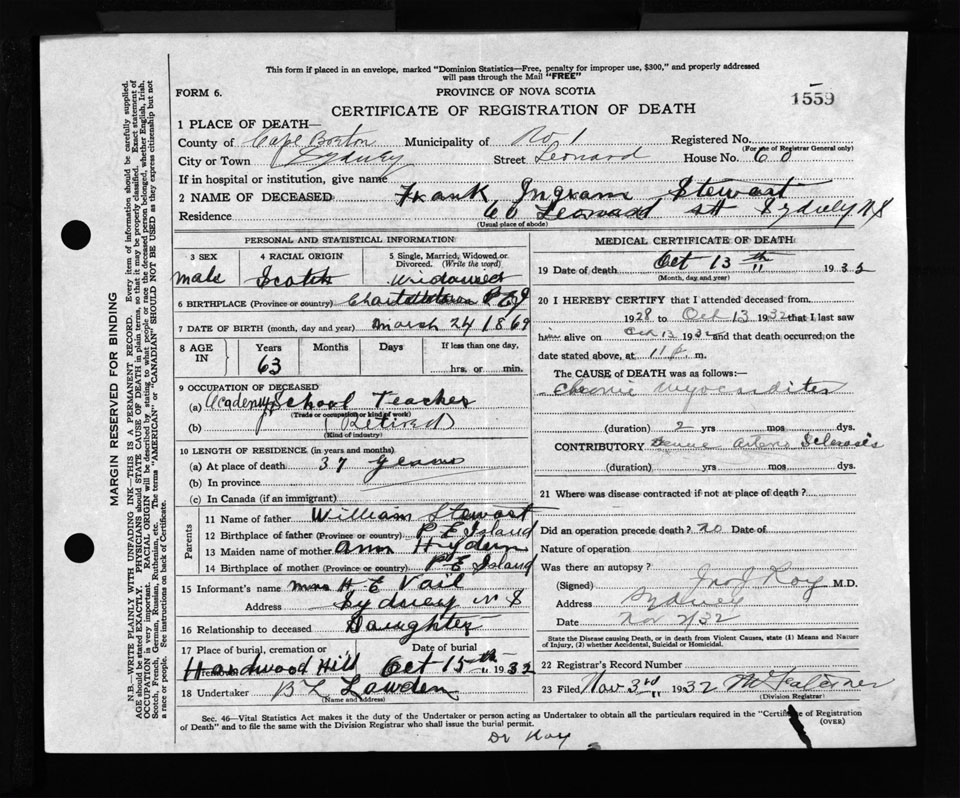 This form if placed in an envelope, marked "Dominion Statistics—Free, penalty for improper use, $300," and properly addressed
will pass through the Mail "FREE"
FORM 6.
PROVINCE OF NOVA SCOTIA
CERTIFICATE OF REGISTRATION OF DEATH
1559
1 PLACE OF DEATH—
County of Cape Breton Municipality of No 1 Registered No.
(For use of Registrar General only)
City or Town Sydney Street Leonard House No. 60
If in hospital or institution, give name
2 NAME OF DECEASED Frank Ingram Stewart
Residence 60 Leonard stt Sydney N S
(Usual place of abode)
PERSONAL AND STATISTICAL INFORMATION
3 SEX 4 RACIAL ORIGIN 5 Single, Married, Widowed or
Divorced. (Write the word)
male Scotch Widowed
6 BIRTHPLACE (Province or country) Charlottetown P E I
7 DATE OF BIRTH (month, day and year) March 24 1869
8 AGE IN Years Months Days If less than one day,
63 hrs. or min.
9 OCCUPATION OF DECEASED
(a) Academy School Teacher
(Trade or occupation or kind of work)
(b) (Retired)
(Kind of industry)
10 LENGTH OF RESIDENCE (in years and months)
(a) At place of death 37 years
(b) In province
(c) In Canada (if an immigrant)
Parents
11 Name of father William Stewart
12 Birthplace of father (Province or country) P E Island
13 Maiden name of mother Ann
14 Birthplace of mother (Province or country) P E Island
15 Informant's name Mrs H E Vail
Address Sydney N S
16 Relationship to deceased Daughter
17 Place of burial, cremation or removal Date of burial
Hardwood Hill Oct 15th 1932
18 Undertaker B L Lawden
(Name and address)
MEDICAL CERTIFICATE OF DEATH
19 Date of death Oct 13th 1932
(Month, day and year)
20 I HEREBY CERTIFY that I attended deceased from.
1928 to Oct 13 1932 that I last saw
him alive on Oct 13 1932 and that death occurred on the
date stated above, at 11 p. m.
The CAUSE of DEATH was as follows:—
Chronic Myocarditis
(duration) 2 yrs mos dys.
CONTRIBUTORY Arterio Sclerosis
(duration) yrs mos dys.
21 Where was disease contracted if not at place of death?
Did an operation precede death? no Date of
Nature of operation
Was there an autopsy?
(Signed) Jno J Roy M.D.
Address Sydney
Date Nov 2/32
State the Disease causing Death, or in death from Violent Causes, state (1) Means and Nature
of Injury, (2) whether Accidental, Suicidal or Homicidal.
22 Registrar's Record Number
23 Filed Nov 3rd 1932
(Division Registrar)
Sec. 46—Vital Statistics Act makes it the duty of the Undertaker or person acting as Undertaker to obtain all the particulars required in the "Certificate of Registration
of Death" and to file the same with the Division Registrar who shall issue the burial permit.
(OVER)
Dr Roy
MARGIN RESERVED FOR BINDING
N.B.—WRITE PLAINLY WITH UNFADING INK—THIS IS A PERMANENT RECORD. Every item of information should be carefully supplied.
AGE should be stated EXACTLY. PHYSICIANS should STATE CAUSE OF DEATH in plain terms, so that it may be properly classified. Exact statement of
OCCUPATION is very important. RACIAL ORIGIN will be described by stating to what people or race the deceased person belonged, whether English, Irish,
Scotch, French, German, Russian, Ruthenian, etc. The terms "AMERICAN" or "CANADIAN" SHOULD NOT BE USED as they express citizenship but not
a race or people. See instructions on back of Certificate.